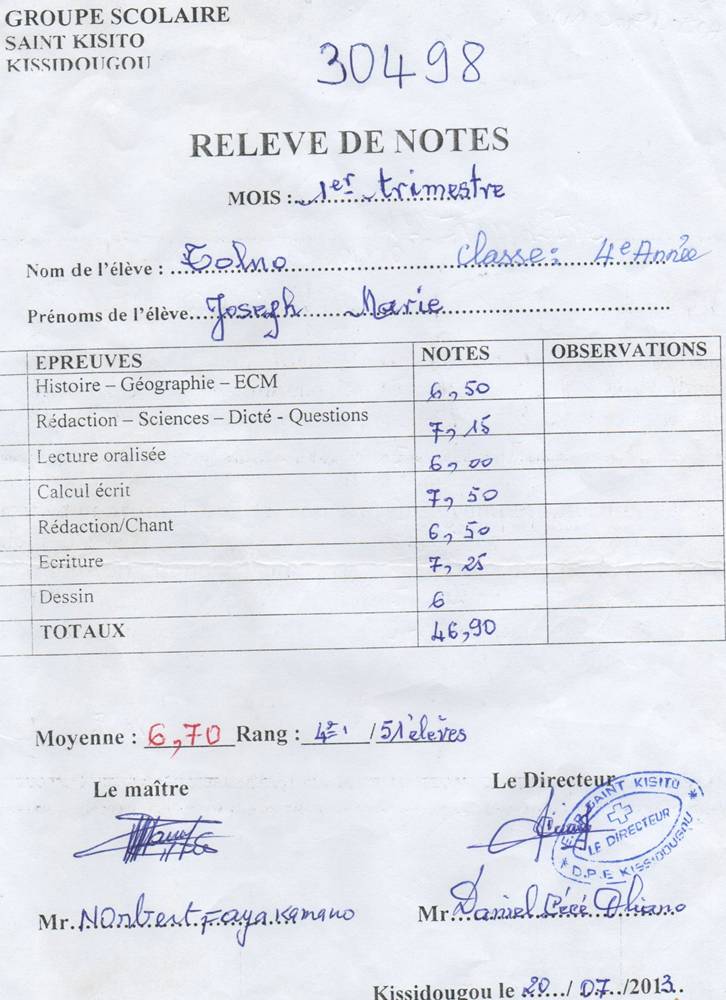 GROUPE SCOLAIRE
SAINT KISITO
KISSIDOUGOU
30498
RELEVE DE NOTES
MOIS : 1er trimestre
Nom de l'élève : Tolno Classe: 4e Année
Prénoms de l'élève Joseph Marie
EPREUVES NOTES OBSERVATIONS
Histoire – Géographie – ECM 6,50
Rédaction – Sciences – Dicté - Questions 7,15
Lecture oralisée 6,00
Calcul écrit 7,50
Rédaction/Chant 6,50
Ecriture 7,25
Dessin 6
TOTAUX 46,90
Moyenne : 6,70 Rang : 4e /51 élèves
Le maître Le Directeur
SAINT KISITO
LE DIRECTEUR
D.P.E KISSIDOUGOU
Mr. Norbert Faya Kamano Mr. Daniel Cécé
Kissidougou le 20 / 07 /2013